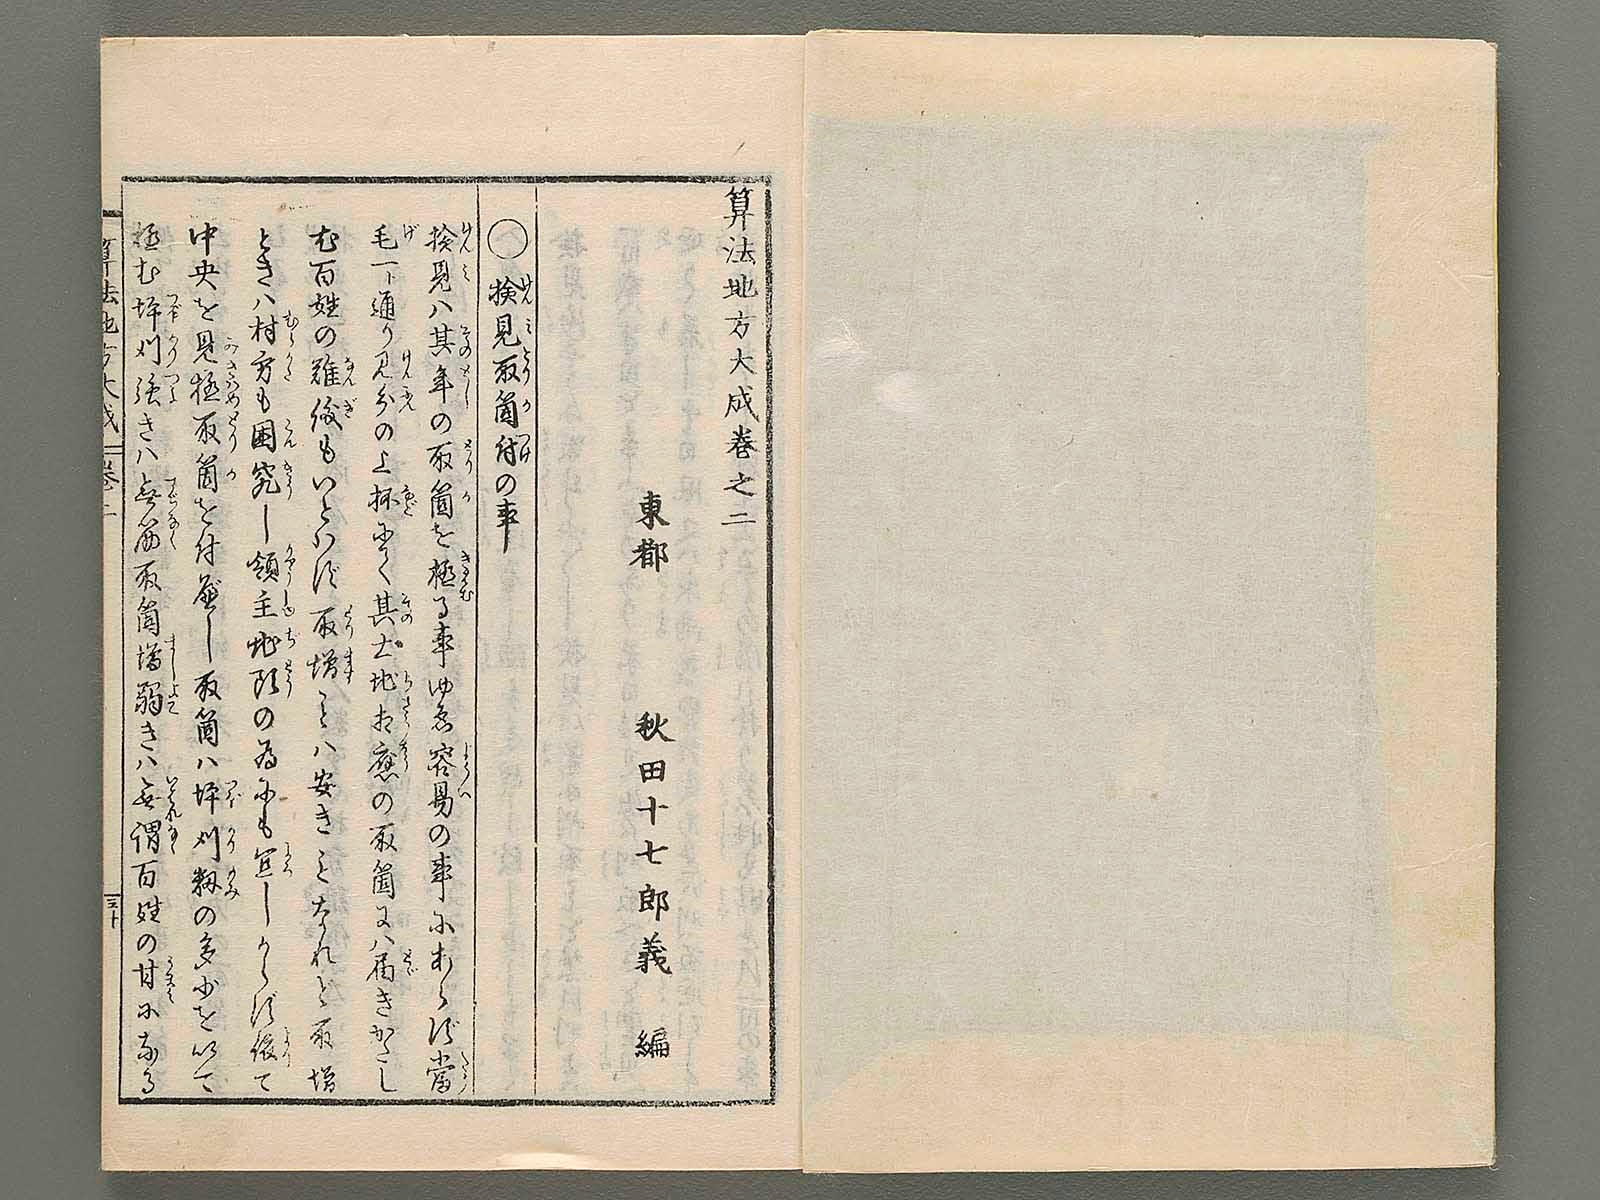 算法地方大成巻之二
東都　秋田十七郎義一編
○検見取箇付の事
検見ハ其年の取箇を極る事ゆゑ容易の事にあらず當
毛一ト通り見分の上抔にて其土地相應の取箇にハ届きがたし
百姓の難儀もいとハず取増ことハ安きことなれど取増
ときハ村方も困究し領主地頭の為にも宜しからず依て
中央を見極取箇を付べし取箇ハ坪刈籾の多少を以て
極む坪刈強きハ無筋取箇増弱きハ無謂百姓の甘になる
算法地方大成　巻二　三十